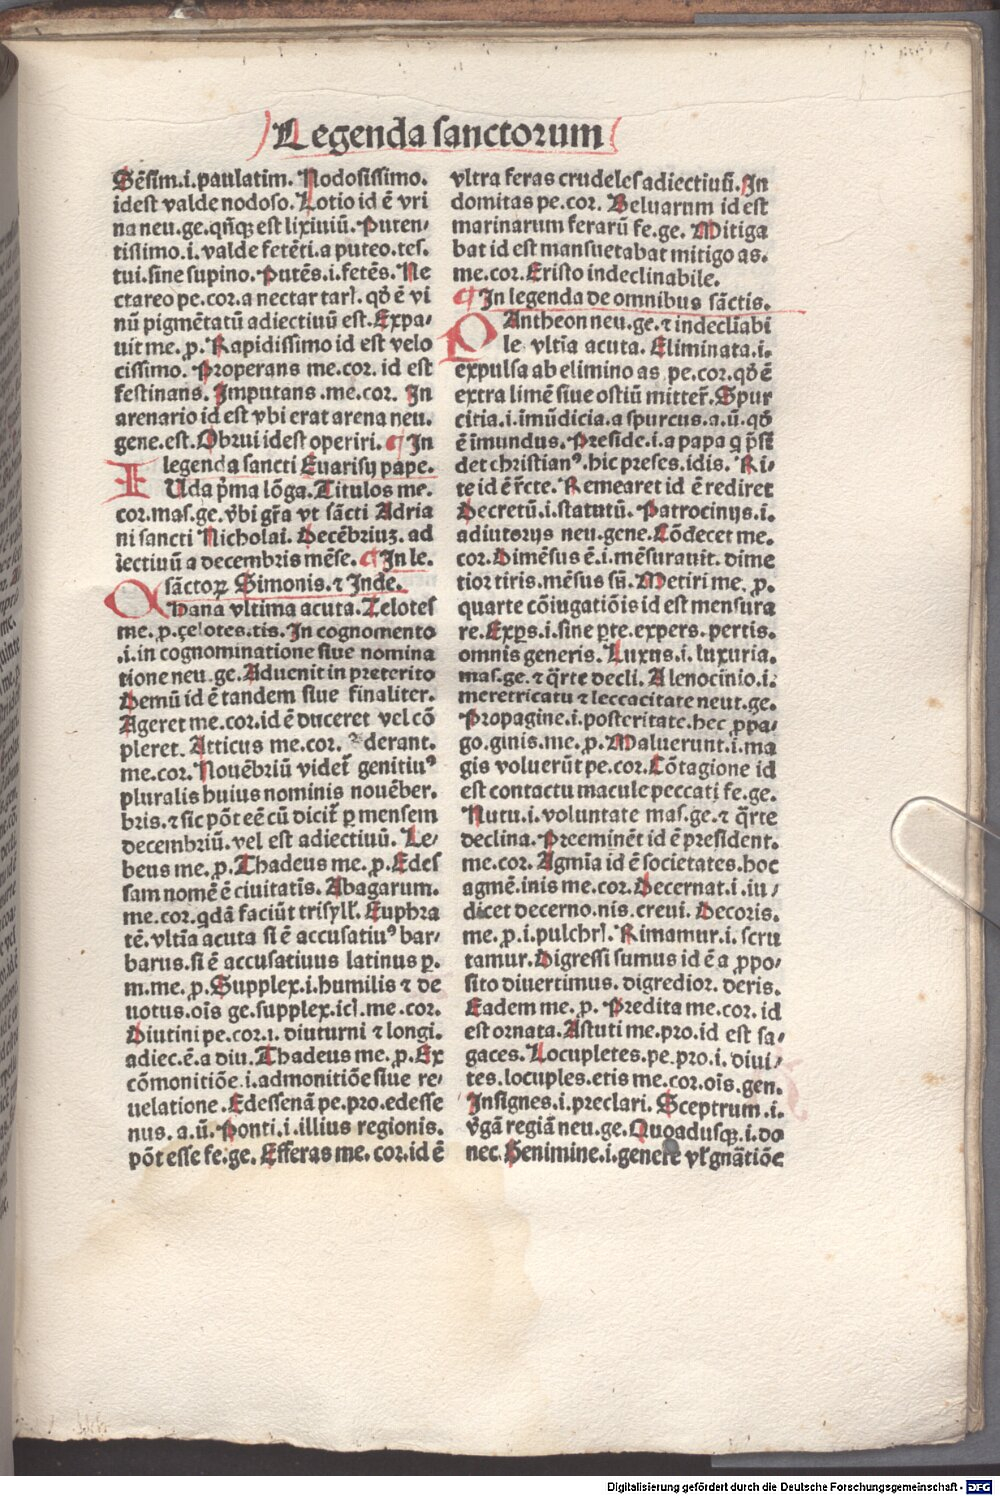 Legenda sanctorum
Sẽsim.i.paulatim. Nodosissimo.
idest valde nodoso. Lotio id ẽ vri
na neu.ge.qñqꝫ est lixiuiũ. Puten⸗
tissimo.i.valde fetẽti.a puteo.tes.
tui.sine supino. Putẽs.i.fetẽs. Ne
ctareo pe.cor.a nectar tarꝭ. qđ ẽ vi
nũ pigmẽtatũ adiectiuũ est. Expa⸗
uit me.ꝓ. Rapidissimo id est velo
cissimo. Properans me.cor. id est
festinans. Imputans.me.cor. In
arenario id est vbi erat arena neu.
gene.est. Obrui idest operiri. ¶ In
legenda sancti Euaristij pape.
IUda p̃ma lõga. Titulos me.
cor.mas.ge.vbi gr̃a vt sãcti Adria
ni sancti Nicholai. Decẽbriuꝫ. ad
iectiuũ a decembris mẽse. ¶ In le.
sãctoꝝ Simonis.⁊ Inde.
OHana vltima acuta. Zelotes
me.ꝓ.çelotes.tis. In cognomento
.i.in cognominatione siue nomina
tione neu.ge. Aduenit in preterito
Demũ id ẽ tandem siue finaliter.
Ageret me.cor.id ẽ duceret vel cõ
pleret. Atticus me.cor. derant.
me.cor. Nouẽbriũ videt̃ genitiuꝰ
pluralis huius nominis nouẽber.
bris.⁊ sic põt eẽ cũ dicit̃ ꝑ mensem
decembriũ.vel est adiectiuũ. Le⸗
beus me.ꝓ. Thadeus me.ꝓ. Edes
sam nomẽ ẽ ciuitatis. Abagarum.
me.cor.qdã faciũt trisylł. Euphra
tẽ.vltĩa acuta si ẽ accusatiuꝰ bar⸗
barus.si ẽ accusatiuus latinus ꝑ.
m.me.ꝓ. Supplex.i.humilis ⁊ de
uotus.oĩs ge.supplex.icꝭ.me.cor.
Diutini pe.cor.i.diuturni ⁊ longi.
adiec.ẽ.a diu. Thadeus me.ꝓ. Ex
cõmonitiõe.i.admonitiõe siue re⸗
uelatione. Edessenã pe.pro.edesse
nus.a.ũ. Ponti.i.illius regionis.
põt esse fe.ge. Efferas me.cor.id ẽ
vltra feras crudeles adiectiuũ. In
domitas pe.cor. Beluarum id est
marinarum ferarũ fe.ge. Mitiga
bat id est mansuetabat mitigo as.
me.cor. Eristo indeclinabile.
¶ In legenda de omnibus sãctis.
PAntheon neu.ge.⁊ indeclĩabi
le vltĩa acuta. Eliminata.i.
expulsa ab elimino as pe.cor.qđ ẽ
extra limẽ siue ostiũ mitter̃. Spur
citia.i.imũdicia.a spurcus.a.ũ.qđ
ẽ ĩmundus. Preside.i.a papa q p̃si
det christianꝰ.hic preses.idis. Ri⸗
te id ẽ r̃cte. Remearet id ẽ rediret
Decretũ.i.statutũ. Patrocinijs.i.
adiutorijs neu.gene. Cõdecet me.
cor. Dimẽsus ẽ.i.mẽsurauit. dime
tior tiris.mẽsus sũ. Metiri me.ꝓ.
quarte cõiugatiõis id est mensura
re. Exꝑs.i.sine ꝑte.expers.pertis.
omnis generis. Luxus.i.luxuria.
mas.ge.⁊ q̃rte decli. A lenocinio.i.
meretricatu ⁊ leccacitate neut.ge.
Propagine.i.posteritate.hec ꝓpa⸗
go.ginis.me.ꝓ. Maluerunt.i.ma
gis voluerũt pe.cor. Cõtagione id
est contactu macule peccati fe.ge.
Nutu.i.voluntate mas.ge.⁊ q̃rte
declina. Preeminẽt id ẽ president.
me.cor. Agmĩa id ẽ societates.hoc
agmẽ.inis me.cor. Decernat.i.iu⸗
dicet decerno.nis.creui. Decoris.
me.ꝓ.i.pulchrꝭ. Rimamur.i.scru
tamur. Digressi sumus id ẽ a ꝓpo⸗
sito diuertimus.digredior.deris.
Eadem me.ꝓ. Predita me.cor.id
est ornata. Astuti me.pro.id est sa⸗
gaces. Locupletes.pe.pro.i.diui⸗
tes.locuples.etis me.cor.oĩs.gen.
Insignes.i.preclari. Sceptrum.i.
v̓gã regiã neu.ge. Quoadusqꝫ.i.do
nec. Benimine.i.genere vł gnãtiõe
Digitalisierung gefördert durch die Deutsche Forschungsgemeinschaft - DFG